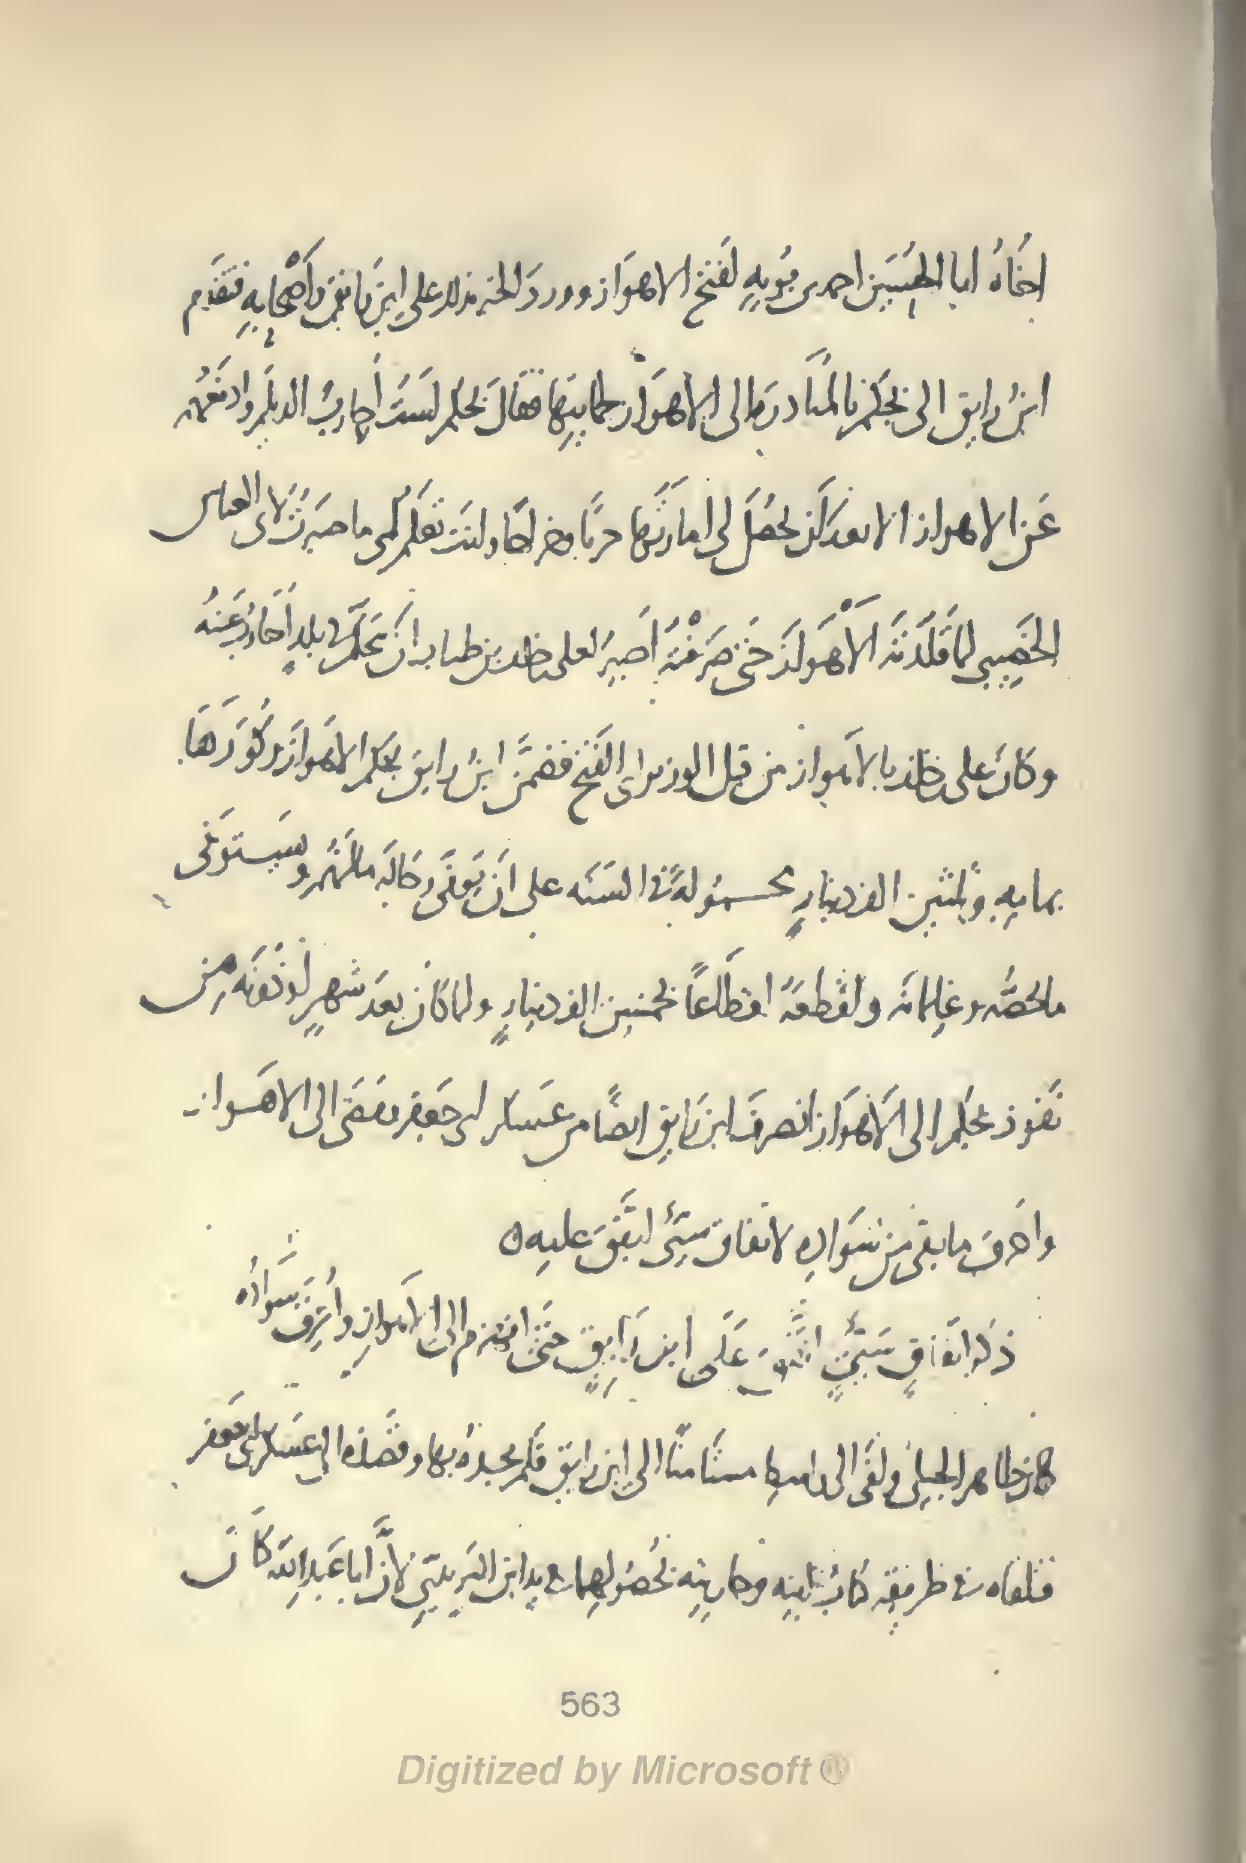 اخاهُ ابا الحُسَين احمد بن بُويهِ لفَتح الاهوَاز وورد الخبر بذلك على ابن رايق وأصحابهِ فتقَدم
ابنُ رايق الى بجكم بالمبادرة الى الاهوَاز لحمايتها فقالَ بجكم لَستُ أحاربُ الديلم وادفعهم
عَن الاهواز الا بعد ان يحصُلَ لى امارتُها حربًا وخراجًا ولستَ تعلم كم ما صبرت لابى العباس
الخَصِيبى لمَّا قلَّدتَه الأهوَاز حَتَّى صَرَفتَهُ أصبرُ لعلى بن خلف بن طناب ان يتحكم فى بلدٍ أُحَاربُ عَنهُ
وكانَ على بن خلف بالاهواز من قِبل الوزير ابى الفَتح فضَمَّن ابنُ رايق بجكم الاهوازَ وكُوَرَهَا
بمايه وثلثين الف دينارٍ محمُولةً فى السَنَه على انْ يُوَفَّى رجَالَه مالهم ويَستَوفى
مالخصُّه وغلمانَه واقطعَهُ اقطاعًا بخمسين الف دينارٍ ولما كان بعدَ شهرٍ من
نفوذ بجكم الى الاهوَاز انصرفَ ابن رَايق ايضًا من عَسكر ابى جَعفر ومَضَى الى الاهَواز
واحرقَ ما بقى من سَوَادهِ لاتفاق سَيّئٍ اتفَقَ عليه ه
ذكر اتفاقٍ سَيّئٍ اتَّفقَ عَلَى ابن رَايقٍ حتَّى انهزم الى الاهوازِ وأُحرقَ سَوادُه
كان طاهر الجيلى وافَى الى واسط مستأمنًا الى ابن رايق فلم يجده بها وقصَدَه الى عَسكر ابى جعفر
فتلقاه فى طريقه كتابُ ابنِه وجاريته بحُصُولهما فى يد ابن البَريدىّ لأنَّ ابا عَبد الله كانَ
563
Digitized by Microsoft ®